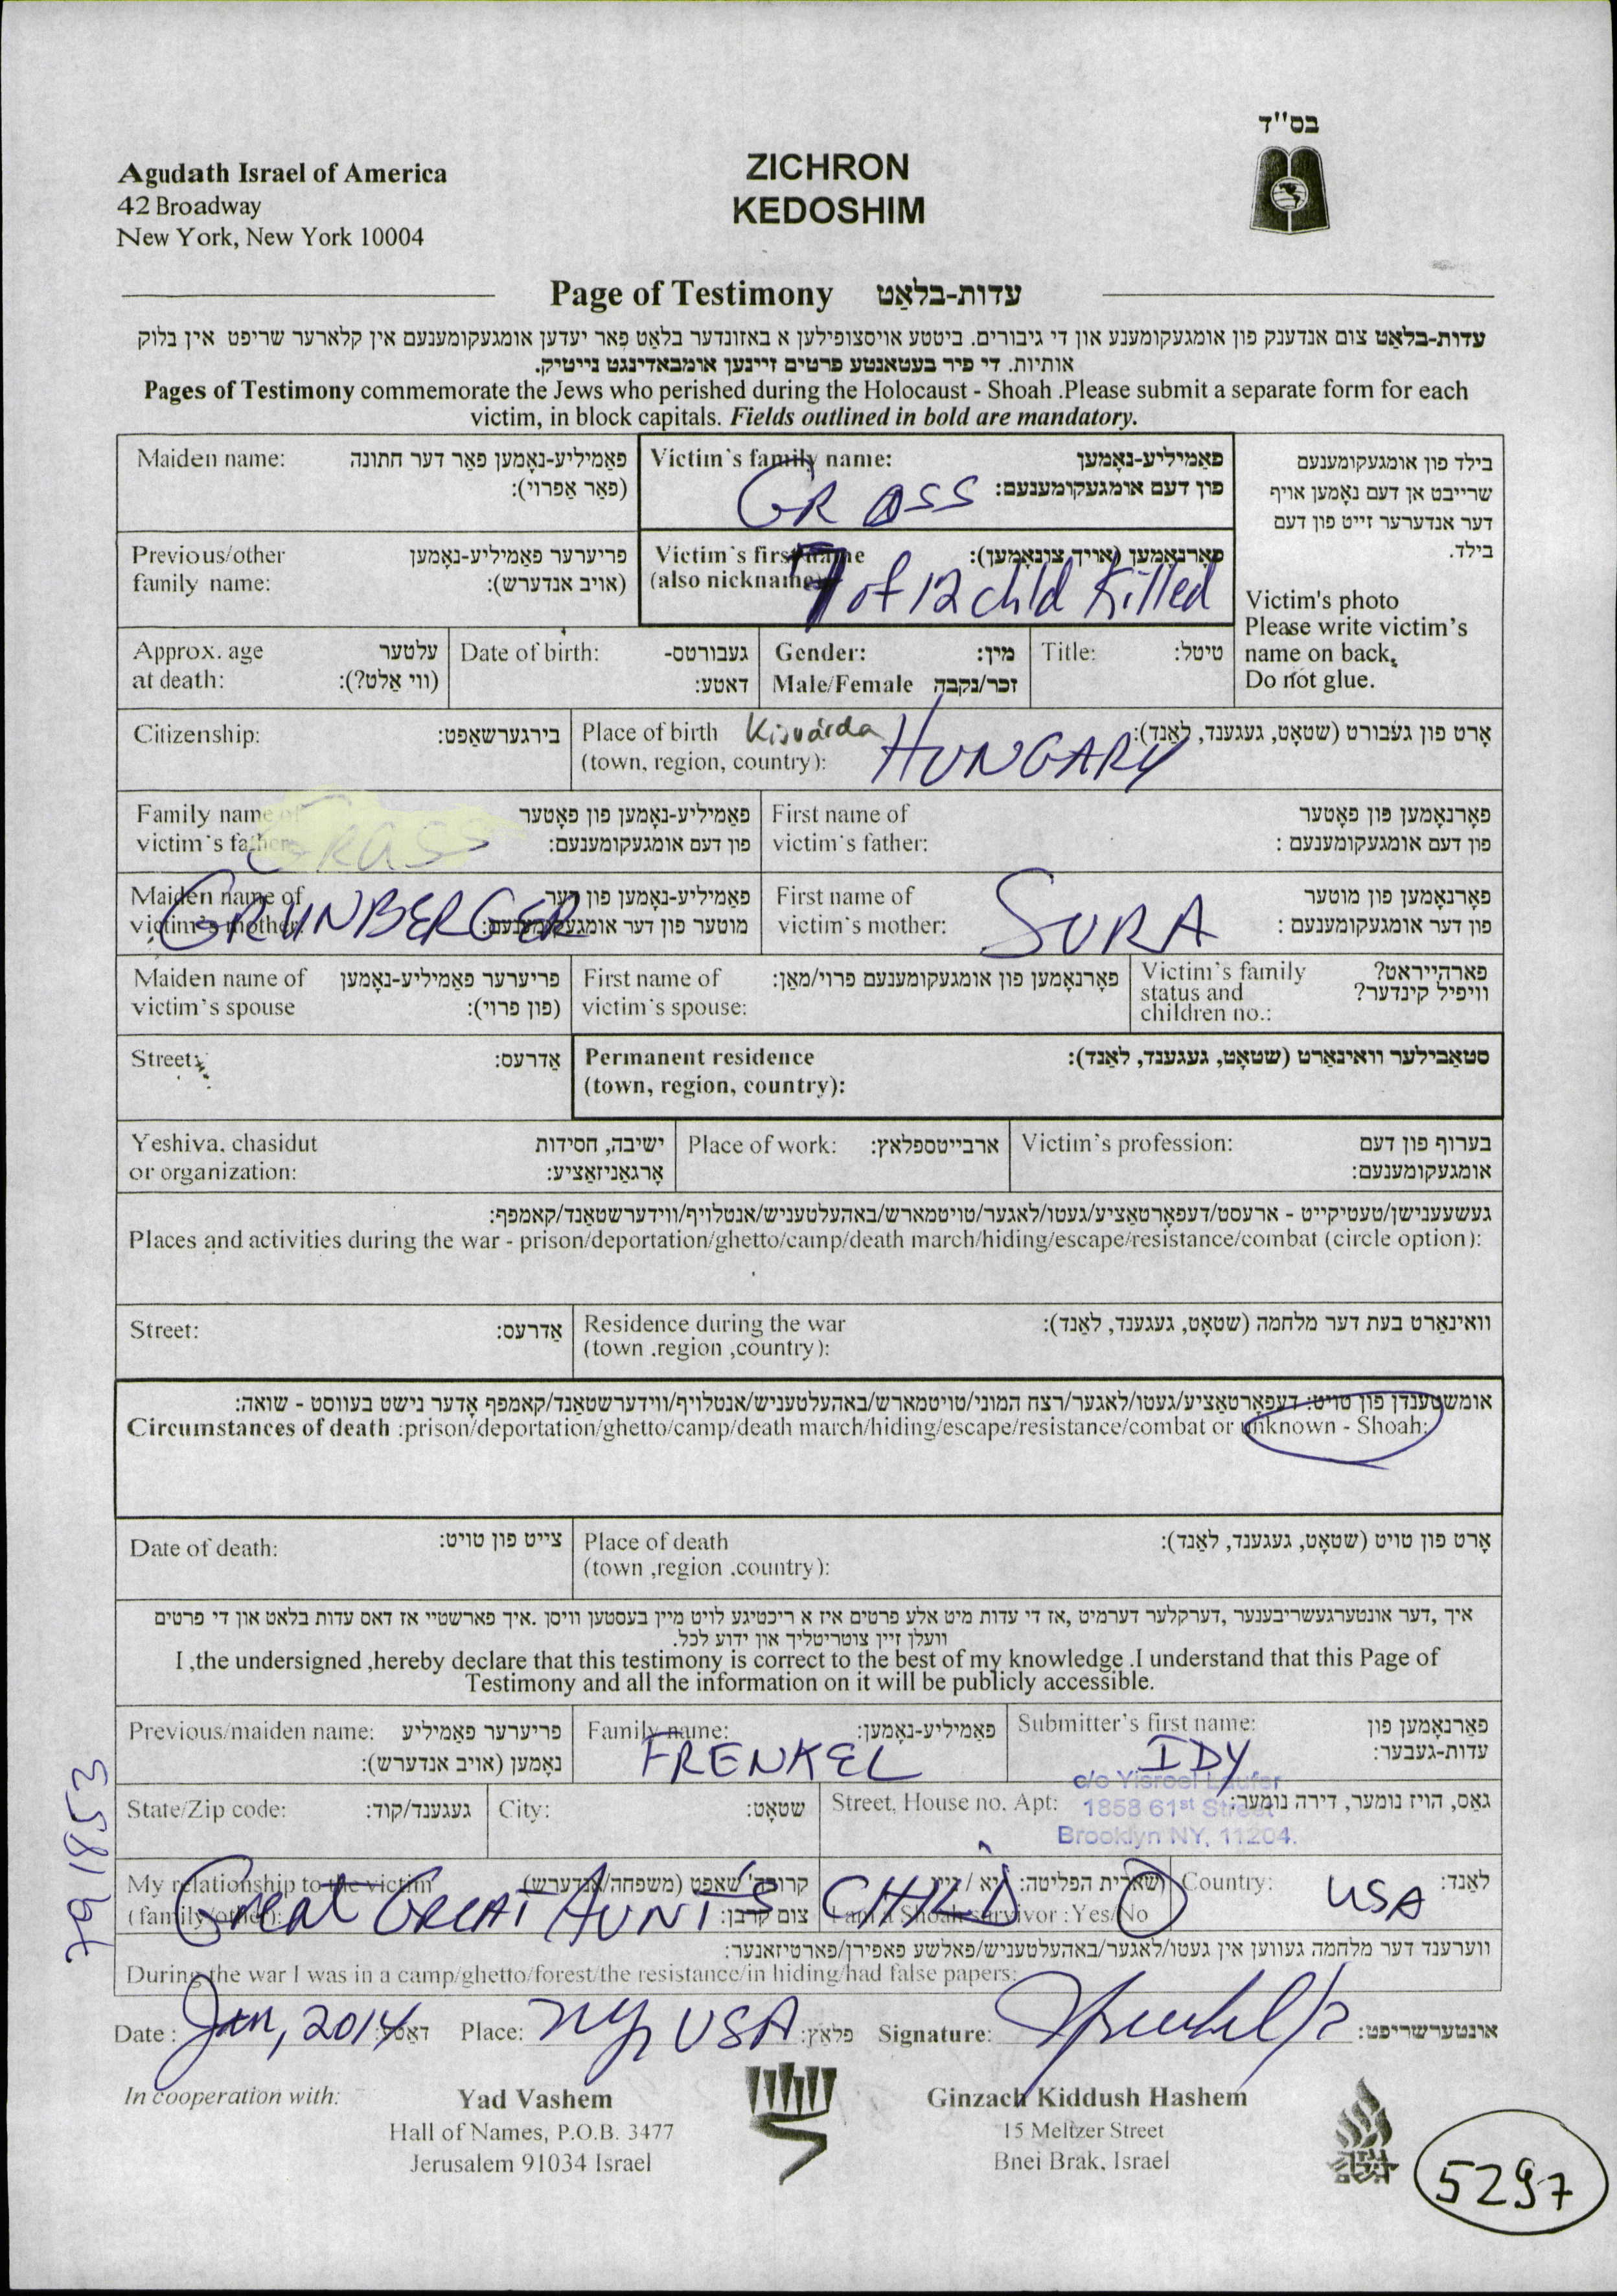 בס"ד
Agudath Israel of America
42 Broadway
New York, New York 10004
ZICHRON
KEDOSHIM
Page of Testimony עדות-בלאַט
עדות-בלאַט צום אנדענק פון אומגעקומענע און די גיבורים. ביטטע אויסצופילען א באזונדער בלאַט פאר יעדען אומגעקומענעם אין קלארער שריפט אין בלוק
אותיות. די פיר בעטאנטע פרטים זיינען אומבאדינגט נייטיק.
Pages of Testimony commemorate the Jews who perished during the Holocaust - Shoah .Please submit a separate form for each
victim, in block capitals. Fields outlined in bold are mandatory.
Maiden name: פאַמיליע-נאָמען פאַר דער חתונה
(פאַר אַפרוי):
Victim's family name: פאַמיליע-נאָמען
פון דעם אומגעקומענעם:
GRASS
בילד פון אומגעקומענעם
שרייבט אן דעם נאָמען אויף
דער אנדערער זייט פון דעם
בילד.
Victim's photo
Please write victim's
name on back.
Do not glue.
Previous/other פריערער פאַמיליע-נאָמען
family name: (אויב אנדערש):
Victim's first name פאָרנאָמען (אויך צונאָמען):
(also nickname)
7 of 12 child Killed
Approx. age עלטער
at death: (ווי אַלט?):
Date of birth: געבורטס-
דאטע:
Gender: מין:
Male/Female זכר/נקבה
Title: טיטל:
Citizenship: בירגערשאַפט:
Place of birth Kisvárda HUNGARY אָרט פון געבורט (שטאָט, געגענד, לאַנד):
(town, region, country):
Family name of פאַמיליע-נאָמען פון פאָטער
victim's father פון דעם אומגעקומענעם:
GRASS
First name of פאָרנאָמען פון פאָטער
victim's father: פון דעם אומגעקומענעם :
Maiden name of פאַמיליע-נאָמען פון דער
victim's mother מוטער פון דער אומגעקומענעם:
GRUNBERGER
First name of פאָרנאָמען פון מוטער
victim's mother: פון דער אומגעקומענעם :
SURA
Maiden name of פריערער פאַמיליע-נאָמען
victim's spouse (פון פרוי):
First name of פאָרנאָמען פון אומגעקומענעם פרוי/מאַן:
victim's spouse:
Victim's family פארהייראט?
status and וויפיל קינדער?
children no.:
Street: אַדרעס:
Permanent residence סטאַבילער וואינאַרט (שטאָט, געגענד, לאַנד):
(town, region, country):
Yeshiva, chasidut ישיבה, חסידות
or organization: אָרגאַניזאַציע:
Place of work: ארבייטספלאץ:
Victim's profession: בערוף פון דעם
אומגעקומענעם:
געשעענישן/טעטיקייט - ארעסט/דעפאָרטאַציע/געטו/לאגער/טויטמארש/באהעלטעניש/אנטלויף/ווידערשטאַנד/קאמפף:
Places and activities during the war - prison/deportation/ghetto/camp/death march/hiding/escape/resistance/combat (circle option):
Street: אַדרעס:
Residence during the war וואינאַרט בעת דער מלחמה (שטאָט, געגענד, לאַנד):
(town .region ,country):
אומשטענדן פון טויט: דעפאָרטאַציע/געטו/לאגער/רצח המוני/טויטמארש/באהעלטעניש/אנטלויף/ווידערשטאַנד/קאמפף אָדער נישט בעווסט - שואה:
Circumstances of death :prison/deportation/ghetto/camp/death march/hiding/escape/resistance/combat or unknown - Shoah:
Date of death: צייט פון טויט:
Place of death אָרט פון טויט (שטאָט, געגענד, לאַנד):
(town ,region .country):
איך ,דער אונטערגעשריבענער ,דערקלער דערמיט ,אז די עדות מיט אלע פרטים איז א ריכטיגע לויט מיין בעסטען וויסן .איך פארשטיי אז דאס עדות בלאט און די פרטים
וועלן זיין צוטריטליך און ידוע לכל.
I ,the undersigned ,hereby declare that this testimony is correct to the best of my knowledge .I understand that this Page of
Testimony and all the information on it will be publicly accessible.
Previous/maiden name: פריערער פאַמיליע
נאָמען (אויב אנדערש):
Family name: פאַמיליע-נאָמען:
FRENKEL
Submitter's first name: פאַרנאָמען פון
עדות-געבער:
IDY
State/Zip code: געגענד/קוד:
City: שטאָט:
Street, House no. Apt: גאַס, הויז נומער, דירה נומער:
c/o Yisroel Laufer
1858 61st Street
Brooklyn NY, 11204.
My relationship to the victim קרובה'שאַפט (משפחה/אנדערש)
(family/other): צום קרבן:
Great GREAT AUNT'S CHILD
שארית הפליטה: יא / ניין
I am a Shoah survivor :Yes/No
Country: לאַנד:
USA
ווערענד דער מלחמה געווען אין געטו/לאגער/באהעלטעניש/פאלשע פאפירן/פארטיזאנער:
During the war I was in a camp/ghetto/forest/the resistance/in hiding/had false papers:
Date : Jan, 2014 דאַטע: Place: NY, USA פלאץ: Signature: אונטערשריפט:
In cooperation with:
Yad Vashem
Hall of Names, P.O.B. 3477
Jerusalem 91034 Israel
Ginzach Kiddush Hashem
15 Meltzer Street
Bnei Brak, Israel
5297
791853